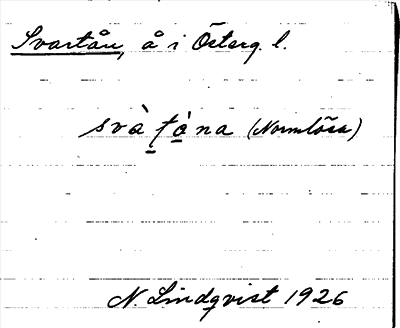 Svartån, å i Österg. l.
svà̱ t̯å̱na (Normlösa)
N. Lindqvist 1926